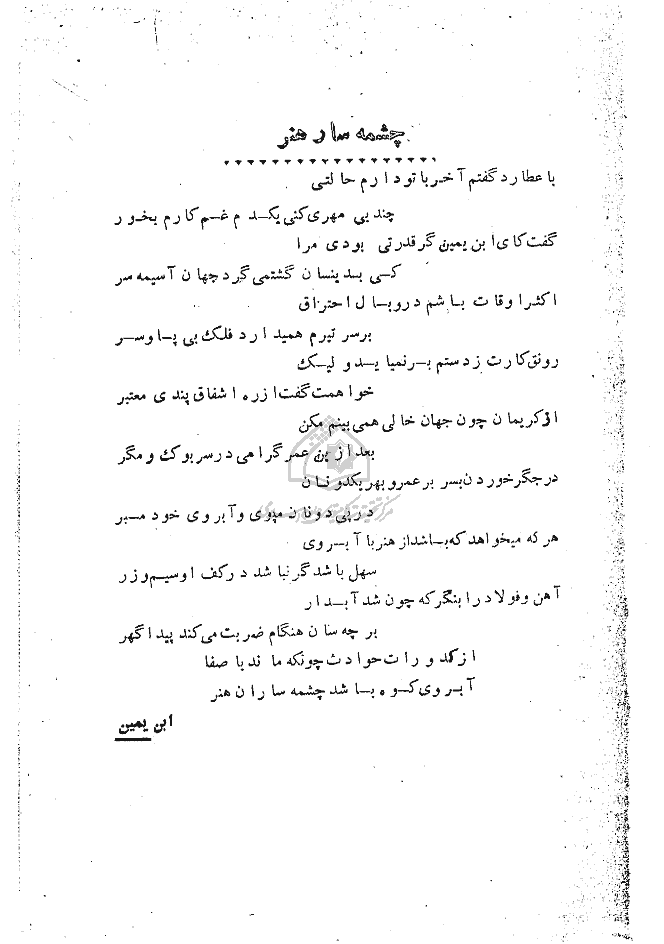 چشمه سار هنر
با عطارد گفتم آخر با تو دارم حالتی
چند بی مهری کنی یکدم غم کارم بخور
گفت کای ابن یمین گر قدرتی بودی مرا
کی بدینسان گشتمی گرد جهان آسیمه سر
اکثر اوقات باشم در وبال احتراق
بر سر تیرم همیدارد فلک بی پا و سر
رونق کارت ز دستم بر نمیاید ولیک
خواهمت گفت از ره اشفاق پندی معتبر
از کریمان چون جهان خالی همی بینم مکن
بعد ازین عمر گرامی در سر بوک و مگر
در جگر خوردن بسر بر عمر و بهر یکدو نان
در پی دونان مپوی و آبروی خود مبر
هر که میخواهد که باشد از هنر با آبروی
سهل باشد گر نباشد در کف او سیم و زر
آهن و فولاد را بنگر که چون شد آبدار
بر چه سان هنگام ضربت می کند پیدا گهر
از کدورات حوادث چونکه ماند با صفا
آبروی کوه باشد چشمه ساران هنر
ابن یمین